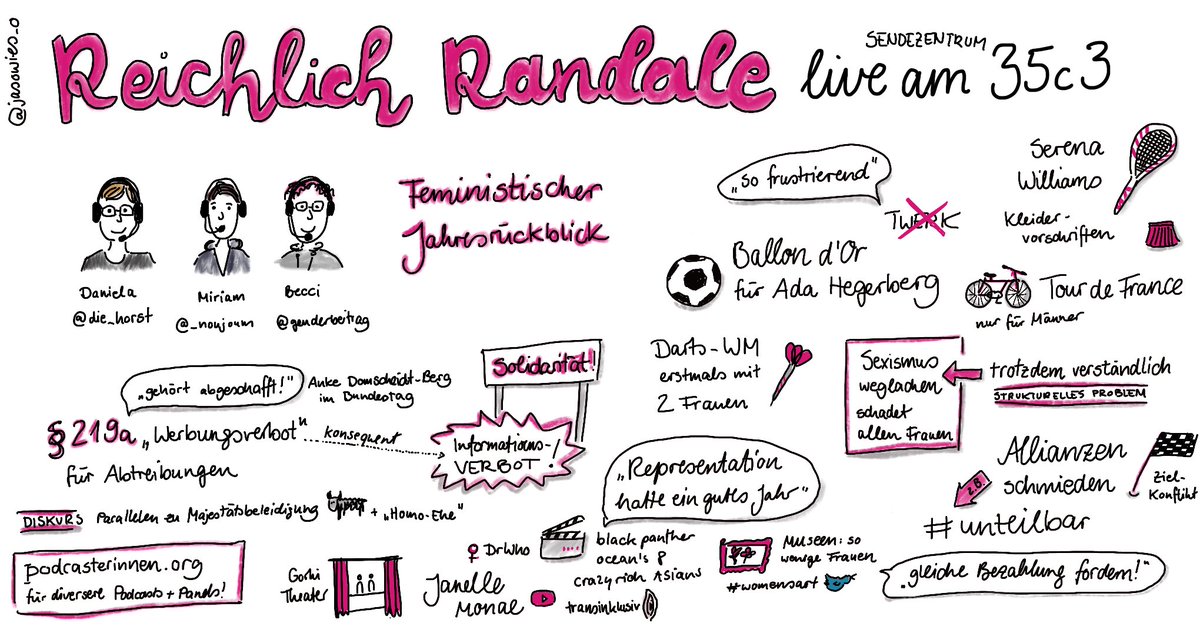 @jasowies_o
Reichlich Randale
SENDEZENTRUM
live am 35c3
Daniela
@die_horst
Miriam
@_noujoum
Becci
@genderbeitrag
Feministischer
Jahresrückblick
„so frustrierend"
TWERK
Ballon d'Or
für Ada Hegerberg
Serena
Williams
Kleider-
vorschriften
Tour de France
nur für Männer
Darts-WM
erstmals mit
2 Frauen
Sexismus
weglachen
schadet
allen Frauen
trotzdem verständlich
STRUKTURELLES PROBLEM
„gehört abgeschafft!"
Anke Domscheidt-Berg
im Bundestag
§219a „Werbungsverbot"
für Abtreibungen
konsequent
Solidarität!
Informations-
VERBOT!
DISKURS Parallelen zu Majestätsbeleidigung + „Homo-Ehe"
podcasterinnen.org
für diversere Podcasts + Panels!
Gorki
Theater
„Representation
hatte ein gutes Jahr"
Dr Who
Janelle
Monae
black panther
ocean's 8
crazy rich Asians
transinklusiv
Museen: so
wenige Frauen
#womensart
Allianzen
schmieden
z.B.
#unteilbar
Ziel-
Konflikt
„gleiche Bezahlung fordern!"